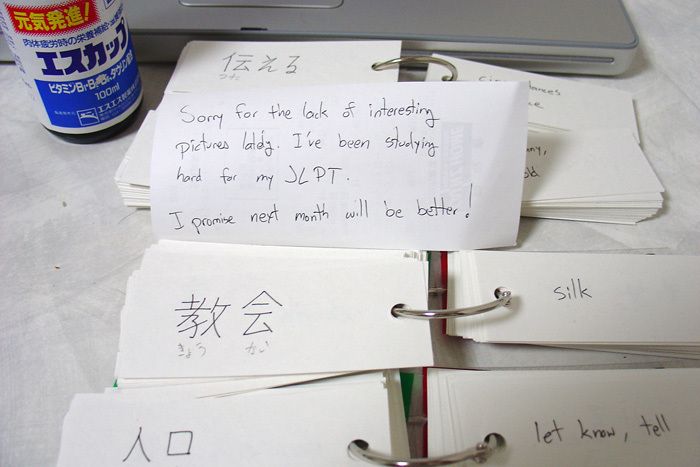 元気発進!
肉体疲労時の栄養補給
エスカップ
100ml
伝える
つた
Sorry for the lack of interesting
pictures lately. I've been studying
hard for my JLPT.
I promise next month will be better!
教会
きょう かい
silk
人口
let know, tell